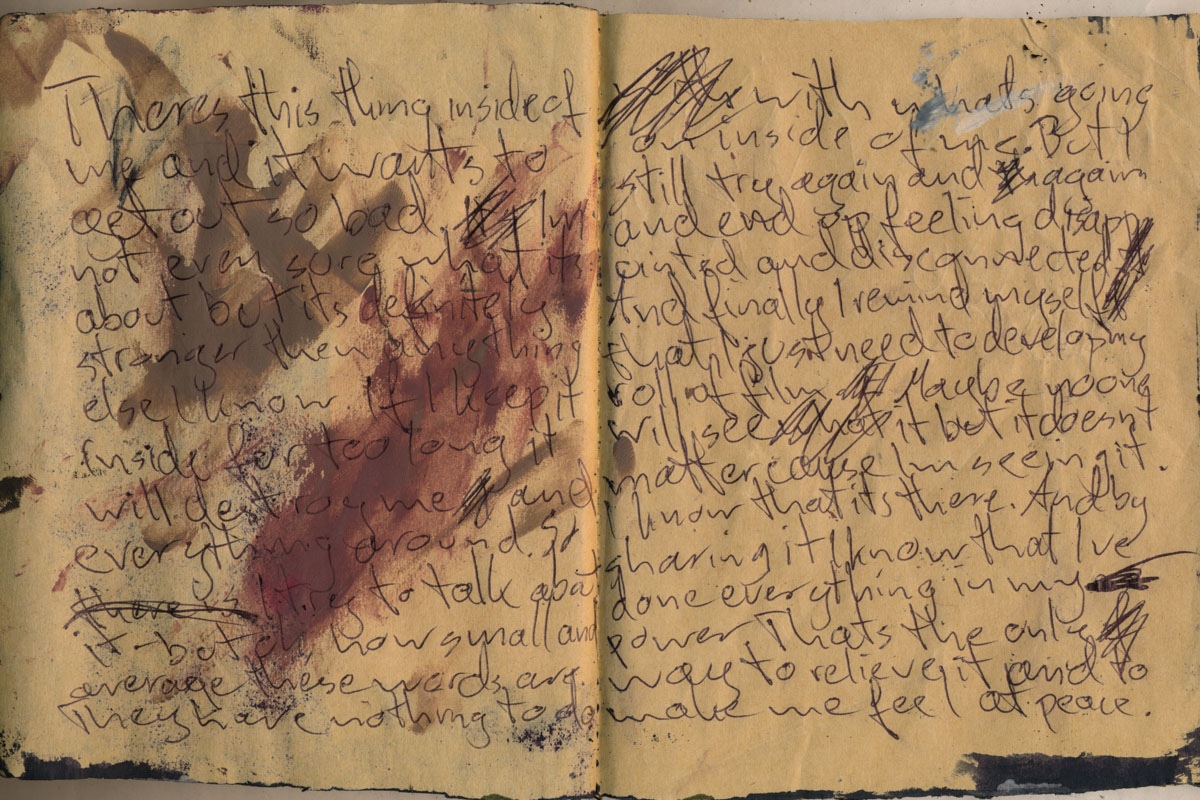 Theres this thing inside of
me and it wants to
get out so bad. Im
not even sure what its
about but its definitely
stranger then anything
else I know. If I keep it
inside for too long it
will destroy me and
everything around. So
there's I try to talk abou
it - but oh how small and
average these words are.
They have nothing to do
with whats going
on inside of me. But I
still try again and again
and end up feeling disapp
ointed and disconnected
And finally I remind myself
that I just need to develop my
roll of film. Maybe noone
will see it but it doesnt
matter cause Im seeing it.
I know that its there. And by
sharing it I know that Ive
done everything in my
power. Thats the only
way to relieve it and to
make me feel at peace.